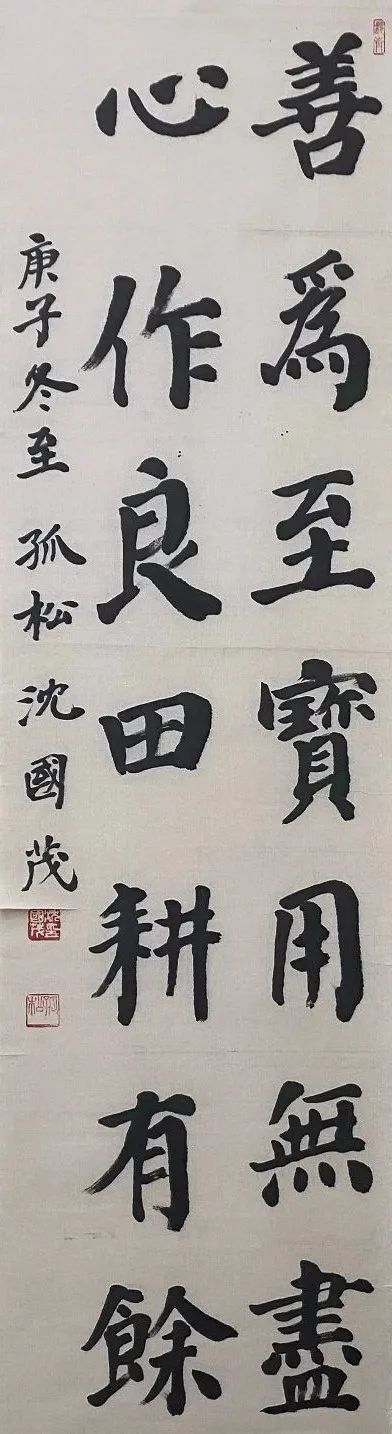 善爲至寶用無盡
心作良田耕有餘
庚子冬至 孤松 沈國茂